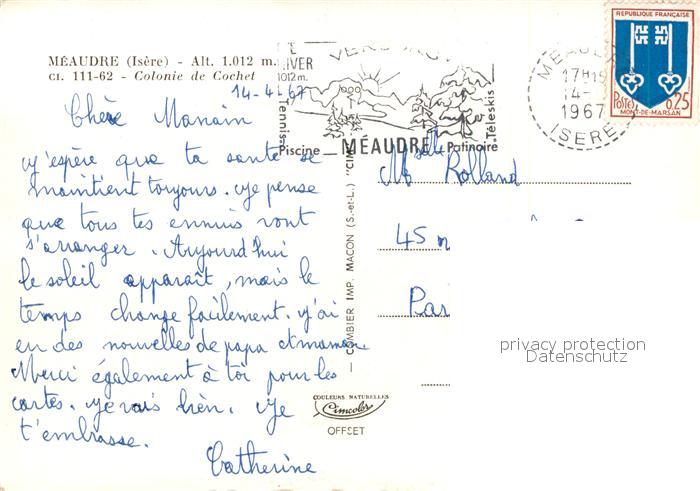 MÉAUDRE (Isère) - Alt. 1.012 m.
CI. 111-62 - Colonie de Cochet
14-4-67
Chère Manain
j'espère que ta santé se
maintient toujours. je pense
que tous tes ennuis vont
s'arranger. Aujourd'hui
le soleil apparaît, mais le
temps change facilement. j'ai
eu des nouvelles de papa et maman.
Merci également à toi pour les
cartes. je vais bien. je
t'embrasse.
Catherine
IVER
1012m.
VERS
Tennis
Piscine
MÉAUDRE
Patinoire
Téléskis
MÉAUDRE
17H15
14-
1967
ISERE
REPUBLIQUE FRANÇAISE
POSTES 0,25
MONT-DE-MARSAN
Melle Rolland
45
Par
privacy protection
Datenschutz
— COMBIER IMP. MACON (S.-et-L.) "CIM
COULEURS NATURELLES
Cimcolor
OFFSET